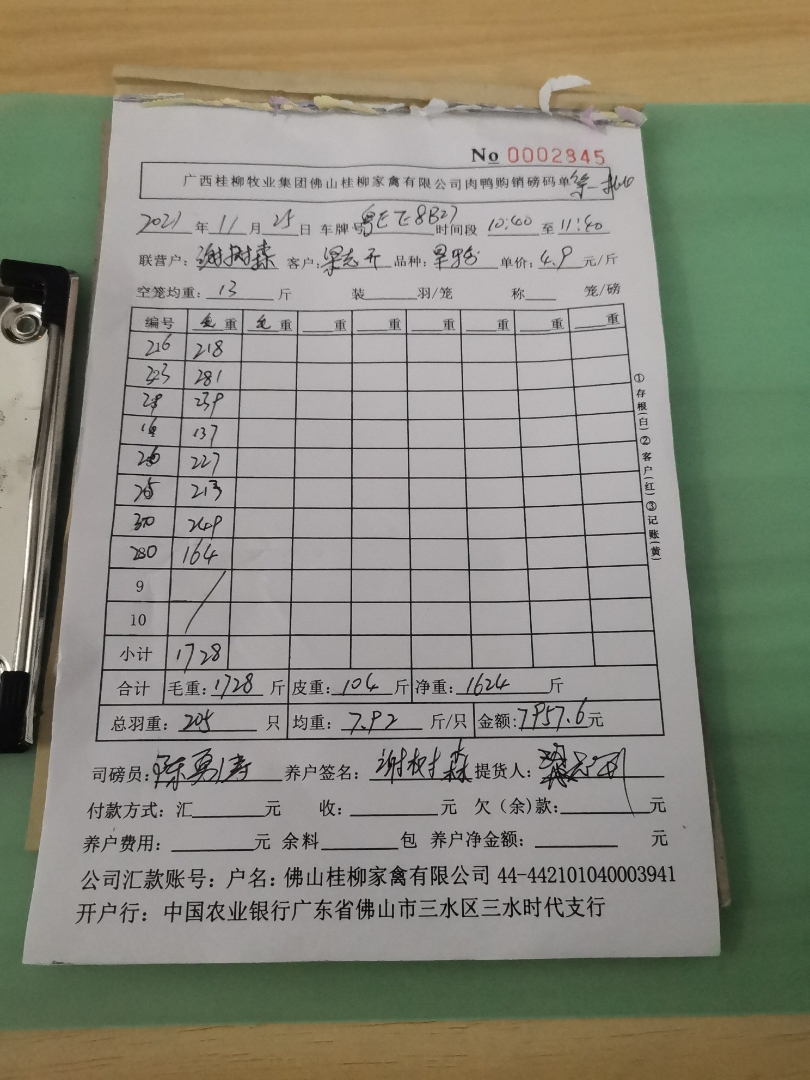 No 0002845
广西桂柳牧业集团佛山桂柳家禽有限公司肉鸭购销磅码单
2021 年 11 月 25 日 车牌号 粤E 8B27 时间段 10:40 至 11:40
联营户: 谢树森 客户: 梁志开 品种: 单价: 4.9 元/斤
空笼均重: 13 斤 装 羽/笼 称 笼/磅
编号 毛 重 毛 重 重 重 重 重 重 重
216 218
281
239
137
227
213
249
164
9
10
小计 1728
合计 毛重: 1728 斤 皮重: 104 斤 净重: 1624 斤
总羽重: 205 只 均重: 7.92 斤/只 金额: 7957.6 元
司磅员: 陈勇涛 养户签名: 谢树森 提货人:
付款方式: 汇 元 收: 元 欠(余)款: 元
养户费用: 元 余料 包 养户净金额: 元
公司汇款账号: 户名: 佛山桂柳家禽有限公司 44-442101040003941
开户行: 中国农业银行广东省佛山市三水区三水时代支行
①存根(白)②客户(红)③记账(黄)